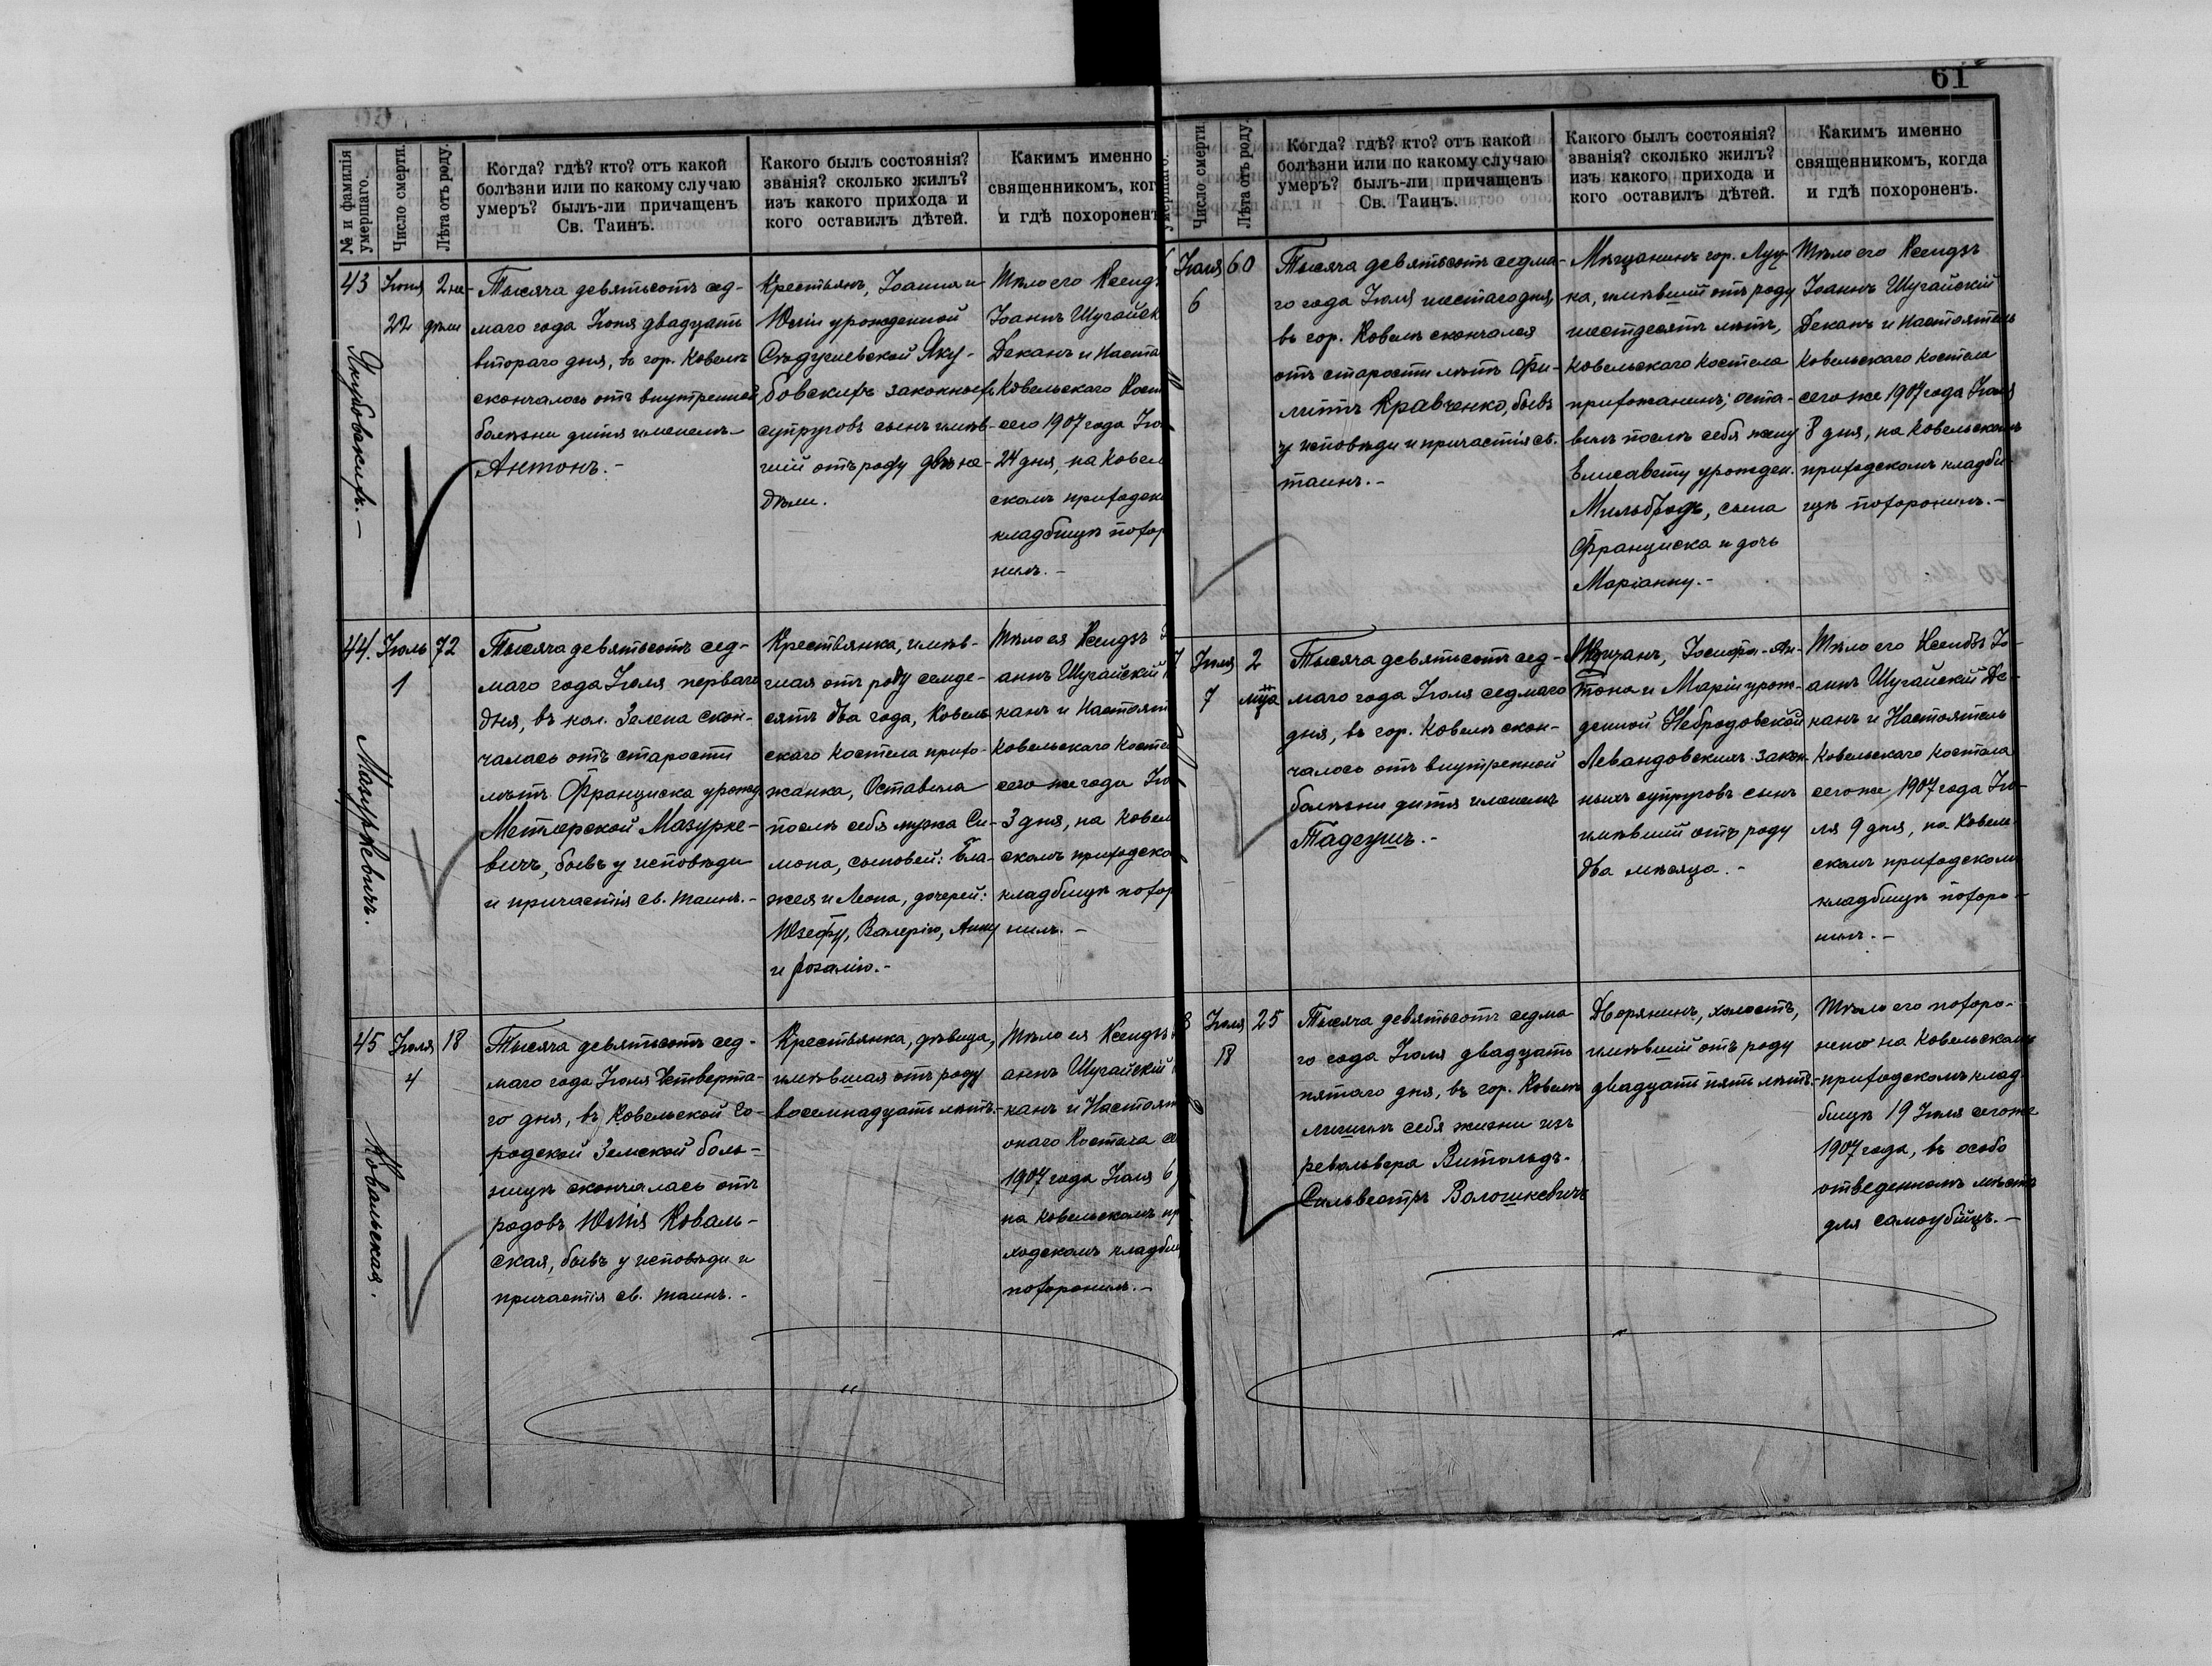 № и фамилія умершаго.
Число смерти.
Лѣта отъ роду.
Когда? гдѣ? кто? отъ какой
болѣзни или по какому случаю
умеръ? былъ-ли причащенъ
Св. Таинъ.
Какого былъ состоянія?
званія? сколько жилъ?
изъ какого прихода и
кого оставилъ дѣтей.
Какимъ именно
священникомъ, ког
и гдѣ похоронен
43
Якубовскихъ.-
Іюня
22
2 не-
дѣли
Тысяча девятьсотъ сед-
маго года Іюня двадцать
втораго дня, въ гор. Ковелѣ
скончалось отъ внутренней
болѣзни дитя именемъ-
Антонъ.-
Крестьянъ, Іоанна и
Юліи урожденной
Яку-
бовскихъ законныхъ
супруговъ сынъ имѣв-
шій отъ роду двѣ не-
дѣли.
Тѣло его Ксендз
Іоаннъ Шугайск
Деканъ и Наст
Ковельскаго Кост
сего 1907 года Ію
24 дня, на Ковел
скомъ приходск
кладбищѣ похор
нилъ.-
44.
Мазуркевичъ.
Іюль
1
72
Тысяча девятьсотъ сед-
маго года Іюля перваго
дня, въ кол. Зелена скон-
чалась отъ старости
лѣтъ Франциска урожд
Мазурке-
вичъ, бывъ у исповѣди
и причастія св. таинъ.-
Крестьянка, имѣв-
шая отъ роду семде-
сятъ два года, Ковель-
скаго Костела прихо-
жанка, Оставила
послѣ себя мужа Си-
мона, сыновей: Бла-
жея и Леона, дочерей:
Юзефу, Валерію, Анну
и Розалію.-
Тѣло ея Ксендзъ І
аннъ Шугайскій
канъ и Настоят
Ковельскаго Косте
сего же года Ію
3 дня, на Ковел
скомъ приходско
кладбищѣ похор
нилъ.-
45
Ковальская.
Іюля
4
18
Тысяча девятьсотъ сед-
маго года Іюля Четверта-
го дня, въ Ковельской Го-
родской Земской боль-
ницѣ скончалась отъ
родовъ Юлія Коваль-
ская, бывъ у исповѣди и
причастія св. таинъ.-
Крестьянка, дѣвица,
имѣвшая отъ роду
восемнадцать лѣтъ.-
Тѣло ея Ксендзъ
аннъ Шугайскій
канъ и Настоят
онаго Костела се
1907 года Іюля 6
на Ковельскомъ пр
ходскомъ кладби
похоронилъ.-
61
умершаго.
Число смерти.
Лѣта отъ роду.
Когда? гдѣ? кто? отъ какой
болѣзни или по какому случаю
умеръ? былъ-ли причащенъ
Св. Таинъ.
Какого былъ состоянія?
званія? сколько жилъ?
изъ какого прихода и
кого оставилъ дѣтей.
Какимъ именно
священникомъ, когда
и гдѣ похороненъ.
Іюля
6
60
Тысяча девятьсотъ седма-
го года Іюля шестаго дня,
въ гор. Ковелѣ скончался
отъ старости лѣтъ Фи-
липпъ Кравченко, бывъ
у исповѣди и причастія св.
таинъ.-
Мѣщанинъ гор. Луц-
ка, имѣвшій отъ роду
шестдесятъ лѣтъ,
Ковельскаго Костела
прихожанинъ; оста-
вилъ послѣ себя жену
Елисавету урожден.
Мильбродъ, сына
Франциска и дочь
Маріанну.-
Тѣло его Ксендзъ
Іоаннъ Шугайскій
Деканъ и Настоятель
Ковельскаго Костела
сего же 1907 года Іюля
8 дня, на Ковельскомъ
приходскомъ кладби-
щѣ похоронилъ.-
7
Іюля
7
2
мца
Тысяча девятьсотъ сед-
маго года Іюля седмаго
дня, въ гор. Ковелѣ скон-
чалось отъ внутренной
болѣзни дитя именемъ
Тадеушъ.-
Мѣщанъ, Іосифа-Ан-
тона и Маріи урож-
денной Небродовской
Левандовскихъ закон-
ныхъ супруговъ сынъ
имѣвшій отъ роду
два мѣсяца.-
Тѣло его Ксендзъ Іо-
аннъ Шугайскій Де-
канъ и Настоятель
Ковельскаго Костела
сего же 1907 года Ію-
ля 9 дня, на Ковель-
скомъ приходскомъ
кладбищѣ похоро-
нилъ.-
8
Іюля
18
25
Тысяча девятьсотъ седма
го года Іюля двадцать
пятаго дня, въ гор. Ковелѣ
лишилъ себя жизни изъ
револьвера Витольдъ-
Сильвестръ Волошкевичъ
Дворянинъ, холостъ,
имѣвшій отъ роду
двадцать пять лѣтъ.-
Тѣло его похоро-
нено на Ковельскомъ
приходскомъ клад-
бищѣ 19 Іюля сего же
1907 года, въ особо
отведенномъ мѣстѣ
для самоубійцъ.-